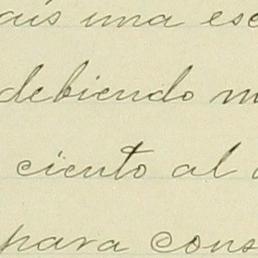 una esc
debiendo m
ciento al
para cons